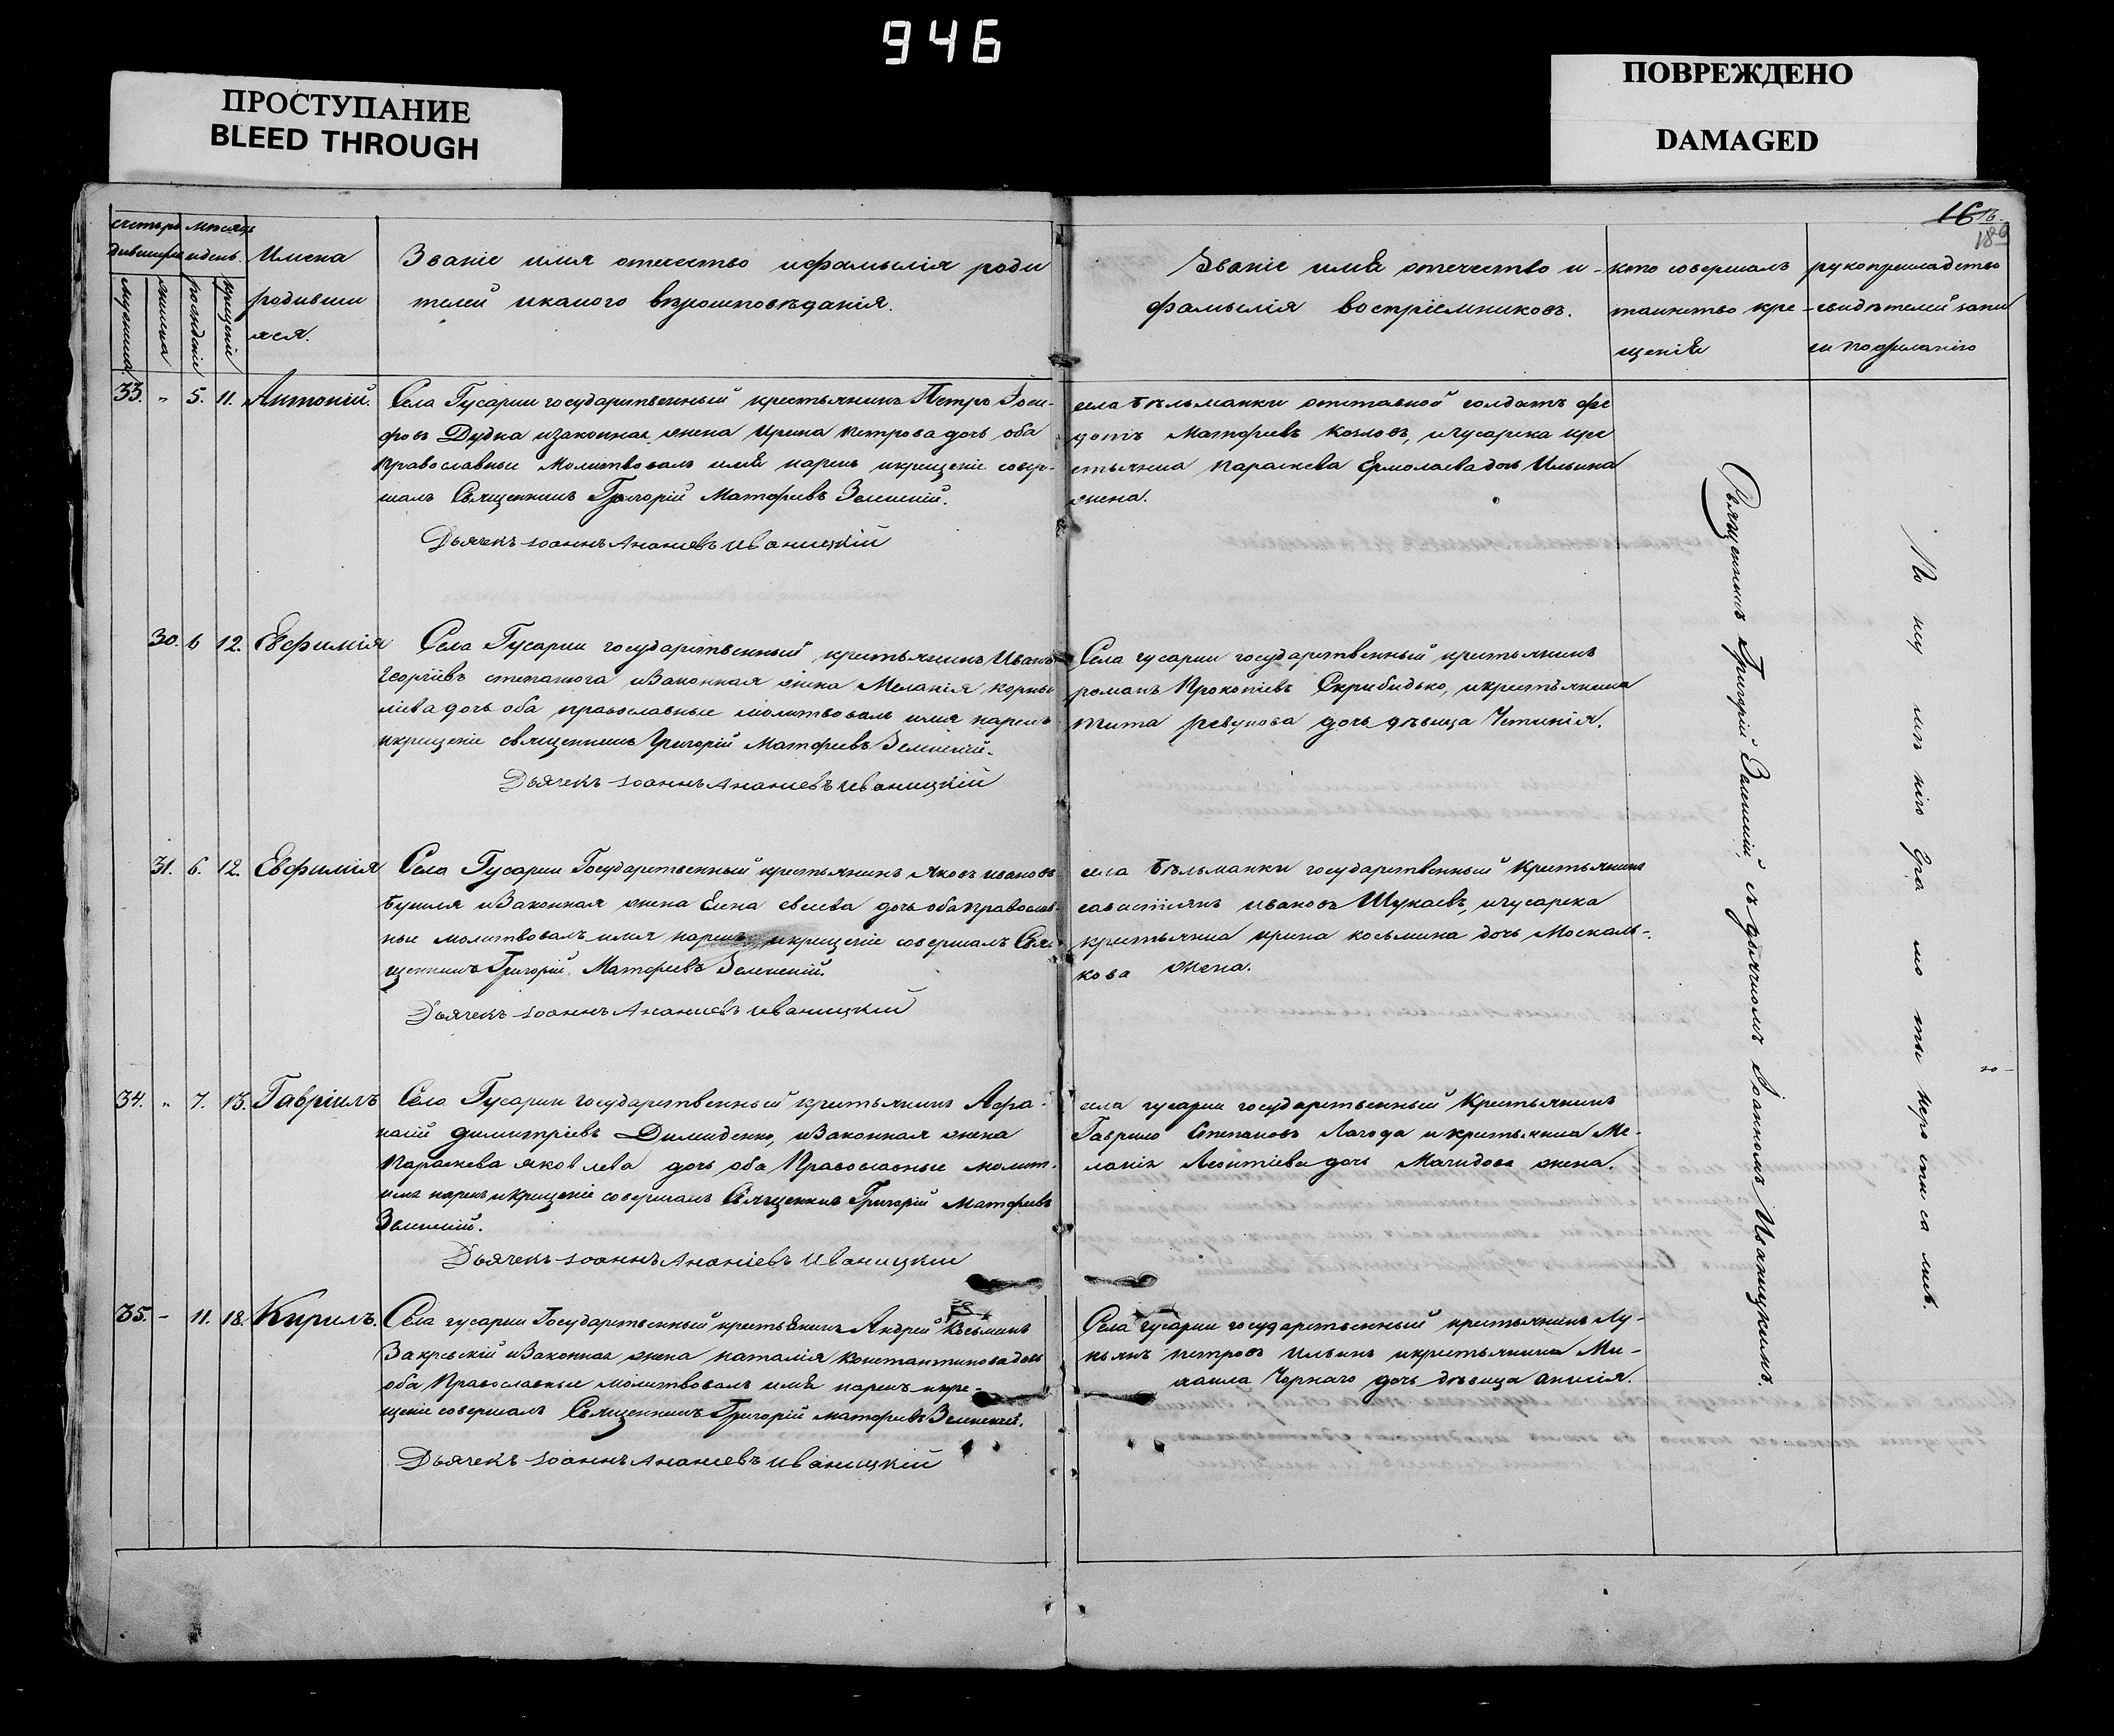 946
ПРОСТУПАНИЕ
BLEED THROUGH
ПОВРЕЖДЕНО
DAMAGED
16 16.
Имена
родивши
яся.
Званіе имя отечество ифамылія роди
телей икакого вѣроисповѣданія.
Званіе имя отечество и-
фамылія воспріемниковъ.
кто совершалъ
таинство кре-
щенія
рукоприкладство
свидѣтелей запи
си пожеланію
мужеска женска рожденіе крещеніе
33. " 5. 11. Антоній.
Села Гусарки государственный крестьянинъ Петръ Іоси-
фовъ Дудка изаконная жена Ирина петрова дочь оба
православные Молитвовалъ имя нарекъ икрещеніе совер-
шалъ Священникъ Григорій Матфеевъ Зеленскій.
Дьячекъ Іоаннъ Ананіевъ Иваницкій
села Бѣльманки отставной солдатъ фе
дотъ Матфеевъ Козловъ, игусарка кре
стьянка параскева Ермолаева дочь Ильина
жена.
30. 6 12. Евфимія
Села Гусарки государственный крестьянинъ Иванъ
Георгіевъ степанюга изаконная жена Меланія корни
ліева дочь оба православные молитвовалъ имя нарекъ
икрещеніе священникъ Григорій Матфеевъ Зеленскій.
Дьячекъ Іоаннъ Ананіевъ Иваницкій
Села гусарки государственный крестьянинъ
романъ Прокопіевъ Скрибидько, икрестьянина
тита ревунова дочь дѣвица Устинія.
31. 6. 12. Евфимія
Села Гусарки Государственный крестьянинъ Яковъ ивановъ
изаконная жена Елена евсеева дочь оба православ-
ные молитвовалъ имя нарекъ икрещеніе совершалъ Свя
щенникъ Григорій Матфеевъ Зеленскій.
Дьячекъ Іоаннъ Ананіевъ Иваницкій
села Бѣльманки государственный Крестьянинъ
савастіянъ ивановъ Шукаевъ, игусарка
крестьянка ирина косьмина дочь Москаль-
кова жена.
34. " 7. 13. Гавріилъ
Села Гусарки государственный крестьянинъ Афа-
насій димитріевъ Димиденко, изаконная жена
Параскева яковлева дочь оба Православные молит.
имя нарекъ икрещеніе совершалъ Священникъ Григорій Матфеевъ
Зеленскій.
Дьячекъ Іоаннъ Ананіевъ Иваницкій
села гусарки государственный Крестьянинъ
Гаврило Степановъ Лагода икрестьянка Ме-
ланія Леонтіева дочь жена.
35. - 11. 18. Кирилъ.
Села гусарки Государственный крестьянинъ Андрей Косьминъ
Закревскій изаконная жена наталія константинова дочь
оба Православные молитвовалъ имя нарекъ икре-
щеніе совершалъ Священникъ Григорій матфеевъ Зеленскій.
Дьячекъ Іоаннъ Ананіевъ Иваницкій
Села гусарки государственный крестьянинъ Лу-
кьянъ петровъ ильинъ икрестьянина Ми-
хаила Чорнаго дочь дѣвица анисія.
Священникъ Григорій Зеленскій съ дьячкомъ Іоанномъ Иваницкимъ.